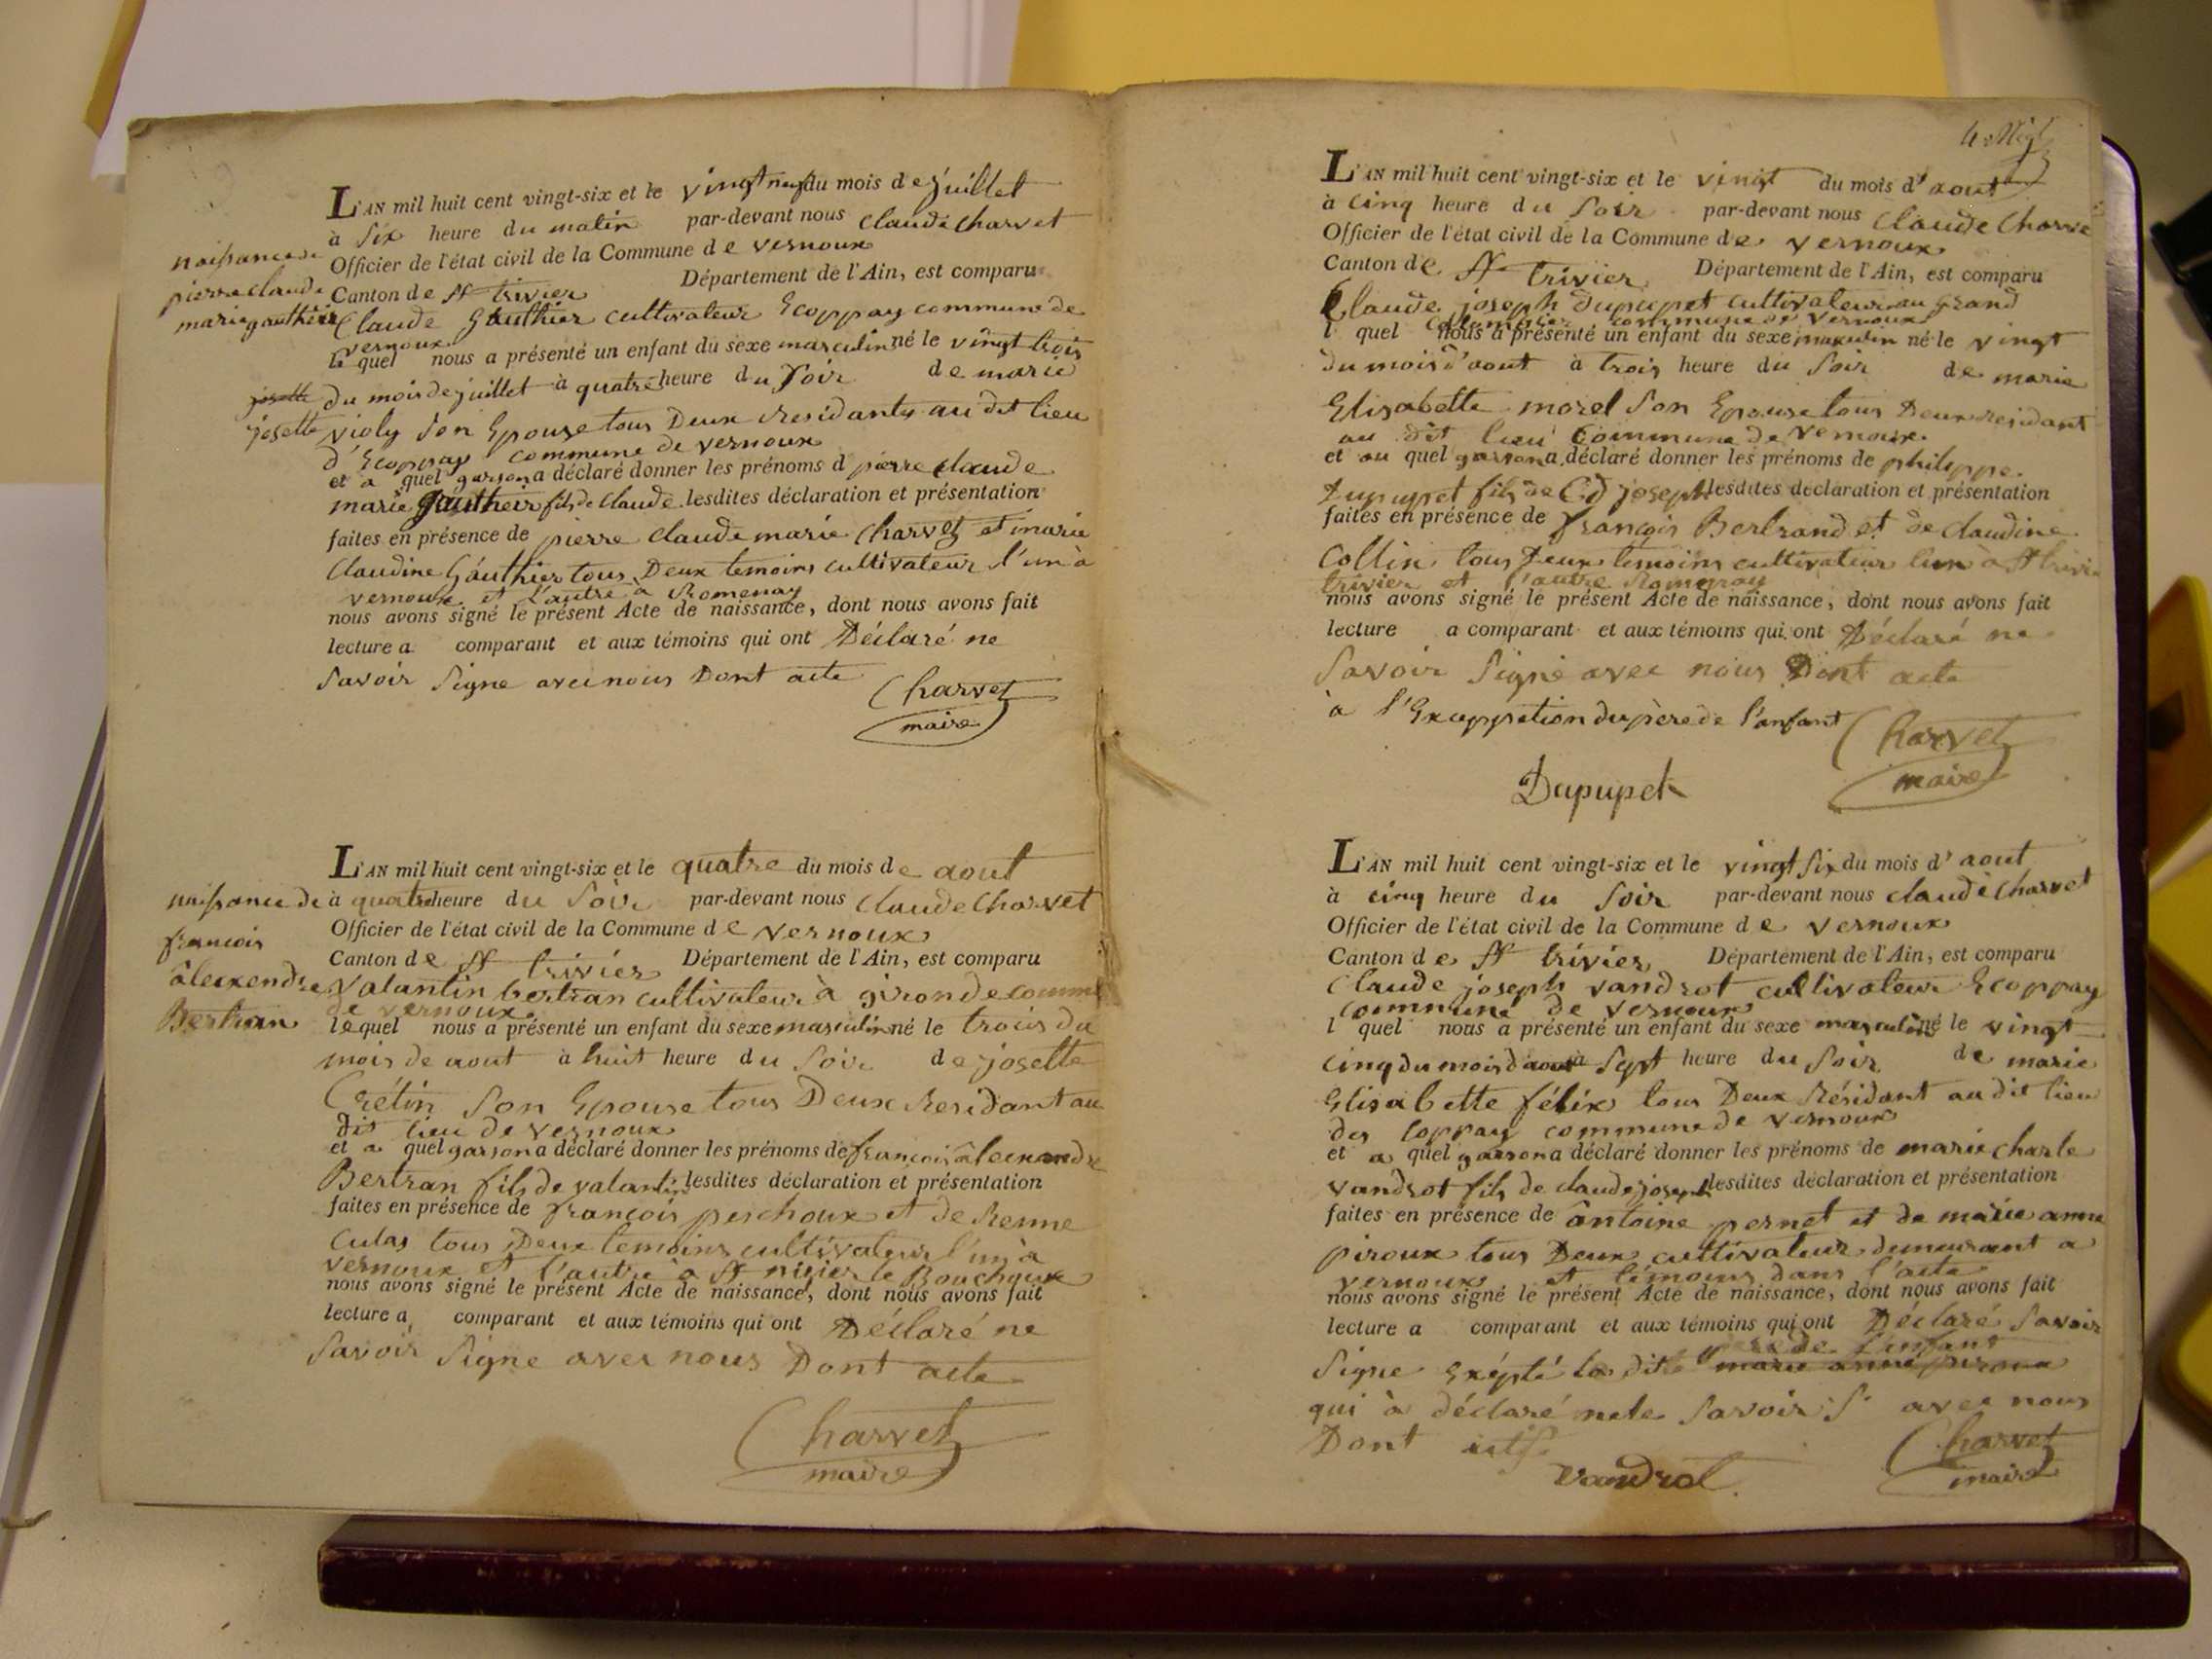 L'AN mil huit cent vingt-six et le vingt neuf du mois de juillet
à six heure du matin par-devant nous claude charvet
Officier de l'état civil de la Commune de vernoux
Canton de st trivier Département de l'Ain, est comparu
naissance de
pierre claude
marie gauthier
Claude Gauthier cultivateur Ecoppay commune de
vernoux
le quel nous a présenté un enfant du sexe masculin né le vingt trois
du mois de juillet à quatre heure du soir de marie
josette
josette
violy son Epouse tous Deux residants au dit lieu
d'Ecoppay commune de vernoux
et a quel garson a déclaré donner les prénoms d pierre claude
marie gauthier fils de claude lesdites déclaration et présentation
faites en présence de pierre claude marie charvet et marie
claudine Gauthier tous Deux temoins cultivateur l'un à
vernoux et l'autre à Romenay
nous avons signé le présent Acte de naissance, dont nous avons fait
lecture a comparant et aux témoins qui ont Déclaré ne
savoir signe avec nous Dont acte
Charvet
maire
L'AN mil huit cent vingt-six et le quatre du mois de aout
à quatre heure du soir par-devant nous claude charvet
Officier de l'état civil de la Commune de vernoux
Canton de st trivier Département de l'Ain, est comparu
naissance de
francois
âlexendre
Bertran
valantin bertran cultivateur à gironde comme
de vernoux
lequel nous a présenté un enfant du sexe masculin né le trois du
mois de aout à huit heure du soir de josette
Crétin son Epouse tous Deux residant au
dit lieu de vernoux
et a quel garson a déclaré donner les prénoms de francois âlexandre
Bertran fils de valantin lesdites déclaration et présentation
faites en présence de francois perchoux et de Renne
Culas tous Deux temoins cultivateur l'un à
vernoux et l'autre à st nisier le Bouchoux
nous avons signé le présent Acte de naissance, dont nous avons fait
lecture a comparant et aux témoins qui ont Déclaré ne
savoir signe avec nous Dont acte
Charvet
maire
L'AN mil huit cent vingt-six et le vingt du mois d'aout
à cinq heure du soir par-devant nous claude charve
Officier de l'état civil de la Commune de vernoux
Canton de st trivier Département de l'Ain, est comparu
Claude joseph dupupet cultivateur au grand
commune de vernoux
l quel nous a présenté un enfant du sexe masculin né le vingt
du mois d'aout à trois heure du soir de marie
Elisabette morel son Epouse tous Deux residant
au dit lieu commune de vernoux
et au quel garson a déclaré donner les prénoms de philippe
Dupupet fils de Cd joseph lesdites déclaration et présentation
faites en présence de françois Bertrand et de claudine
Collin tous Deux temoins cultivateur l'un à st trivie
trivier et l'autre Romenay
nous avons signé le présent Acte de naissance, dont nous avons fait
lecture a comparant et aux témoins qui ont Déclaré ne
savoir signé avec nous Dont acte
à l'Exceppetion du père de l'anfant
Charvet
maire
Dupupet
L'AN mil huit cent vingt-six et le vingt six du mois d'aout
à cinq heure du soir par-devant nous claude charvet
Officier de l'état civil de la Commune de vernoux
Canton de st trivier Département de l'Ain, est comparu
Claude joseph vandrot cultivateur Ecoppay
commune de vernoux
l quel nous a présenté un enfant du sexe masculin né le vingt
cinq du mois d'aout à sept heure du soir de marie
Elisabette félix tous Deux Résidant au dit lieu
des coppay commune de vernoux
et a quel garson a déclaré donner les prénoms de marie charle
vandrot fils de claude joseph lesdites déclaration et présentation
faites en présence de antoine pernet et de marie anne
piroux tous Deux cultivateur demeurant a
vernoux et témoins dans l'acte
nous avons signé le présent Acte de naissance, dont nous avons fait
lecture a comparant et aux témoins qui ont Déclaré savoir
de l'enfant
signe Exépté la dite marie anne piroux
qui à déclaré ne le savoir avec nous
Dont
Charvet
maire
vandrot